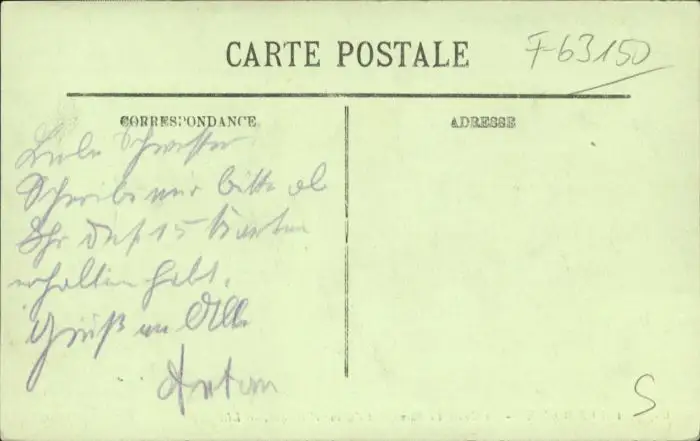 CARTE POSTALE
F-63150
CORRESPONDANCE
ADRESSE
Liebe Schwester
Schreibe mir bitte ob
Ihr die 15 Karten
erhalten habt.
Gruß an Alle
Anton
S